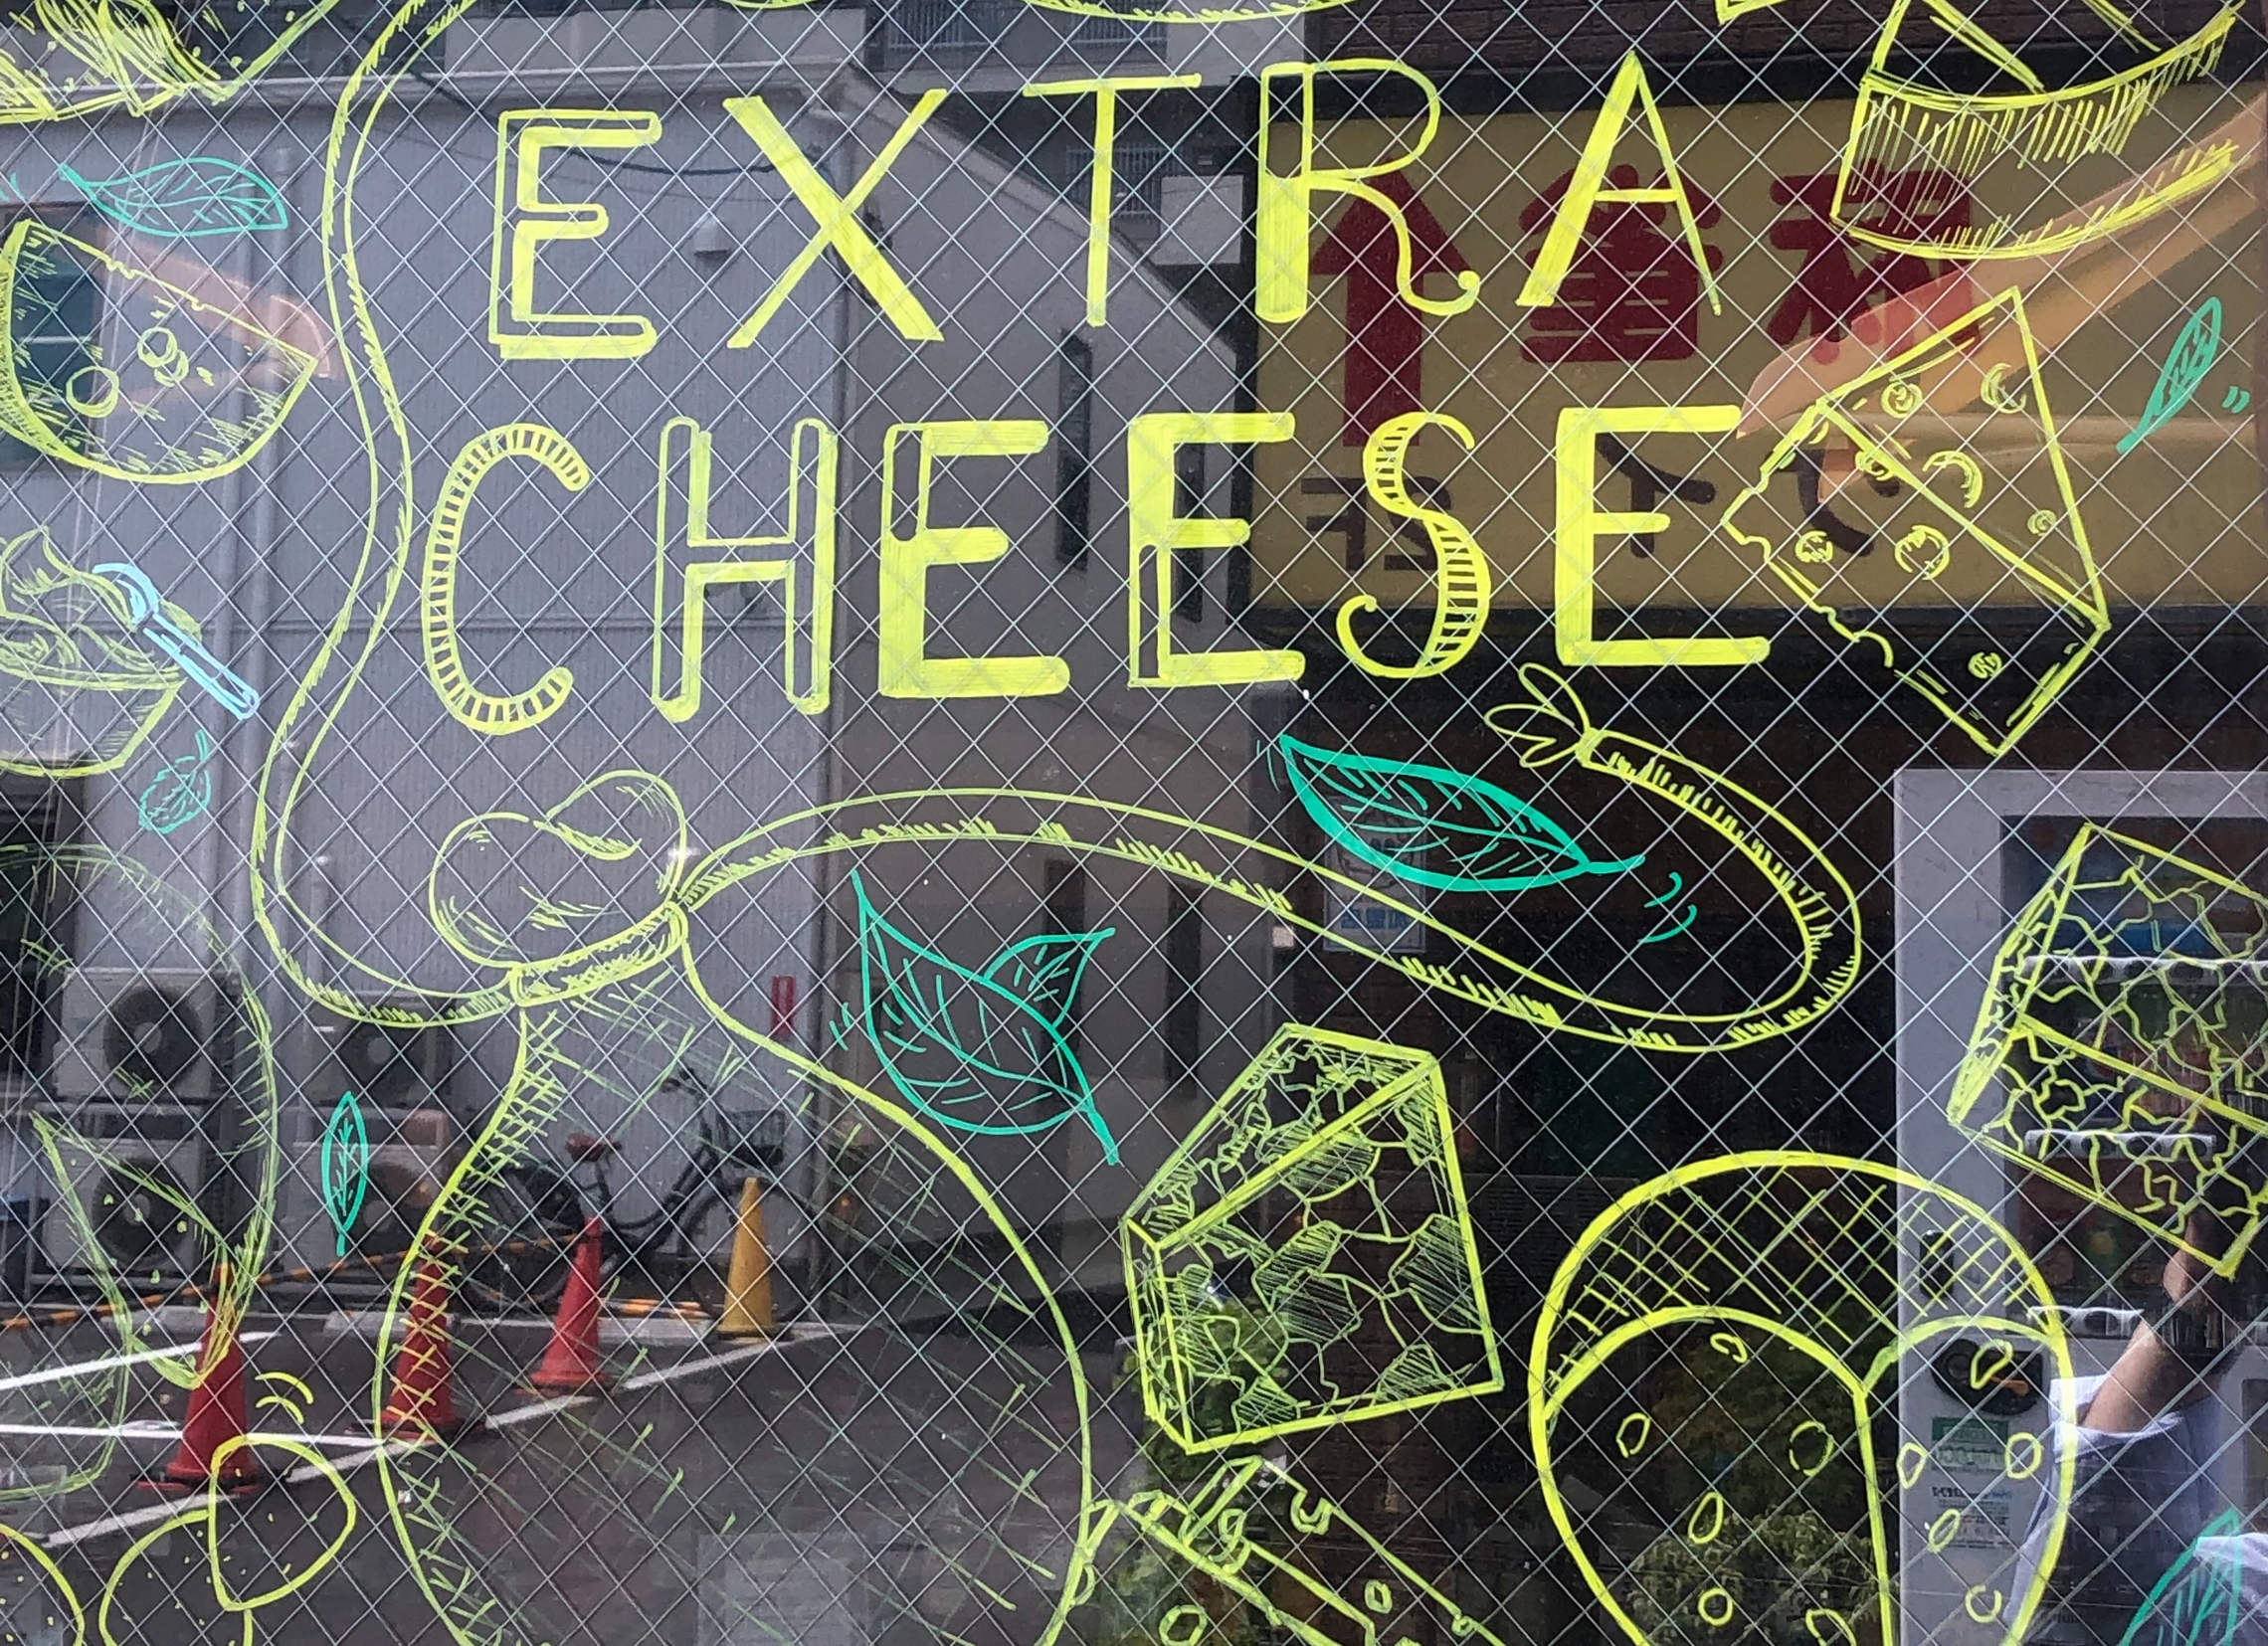 EXTRA
CHEESE